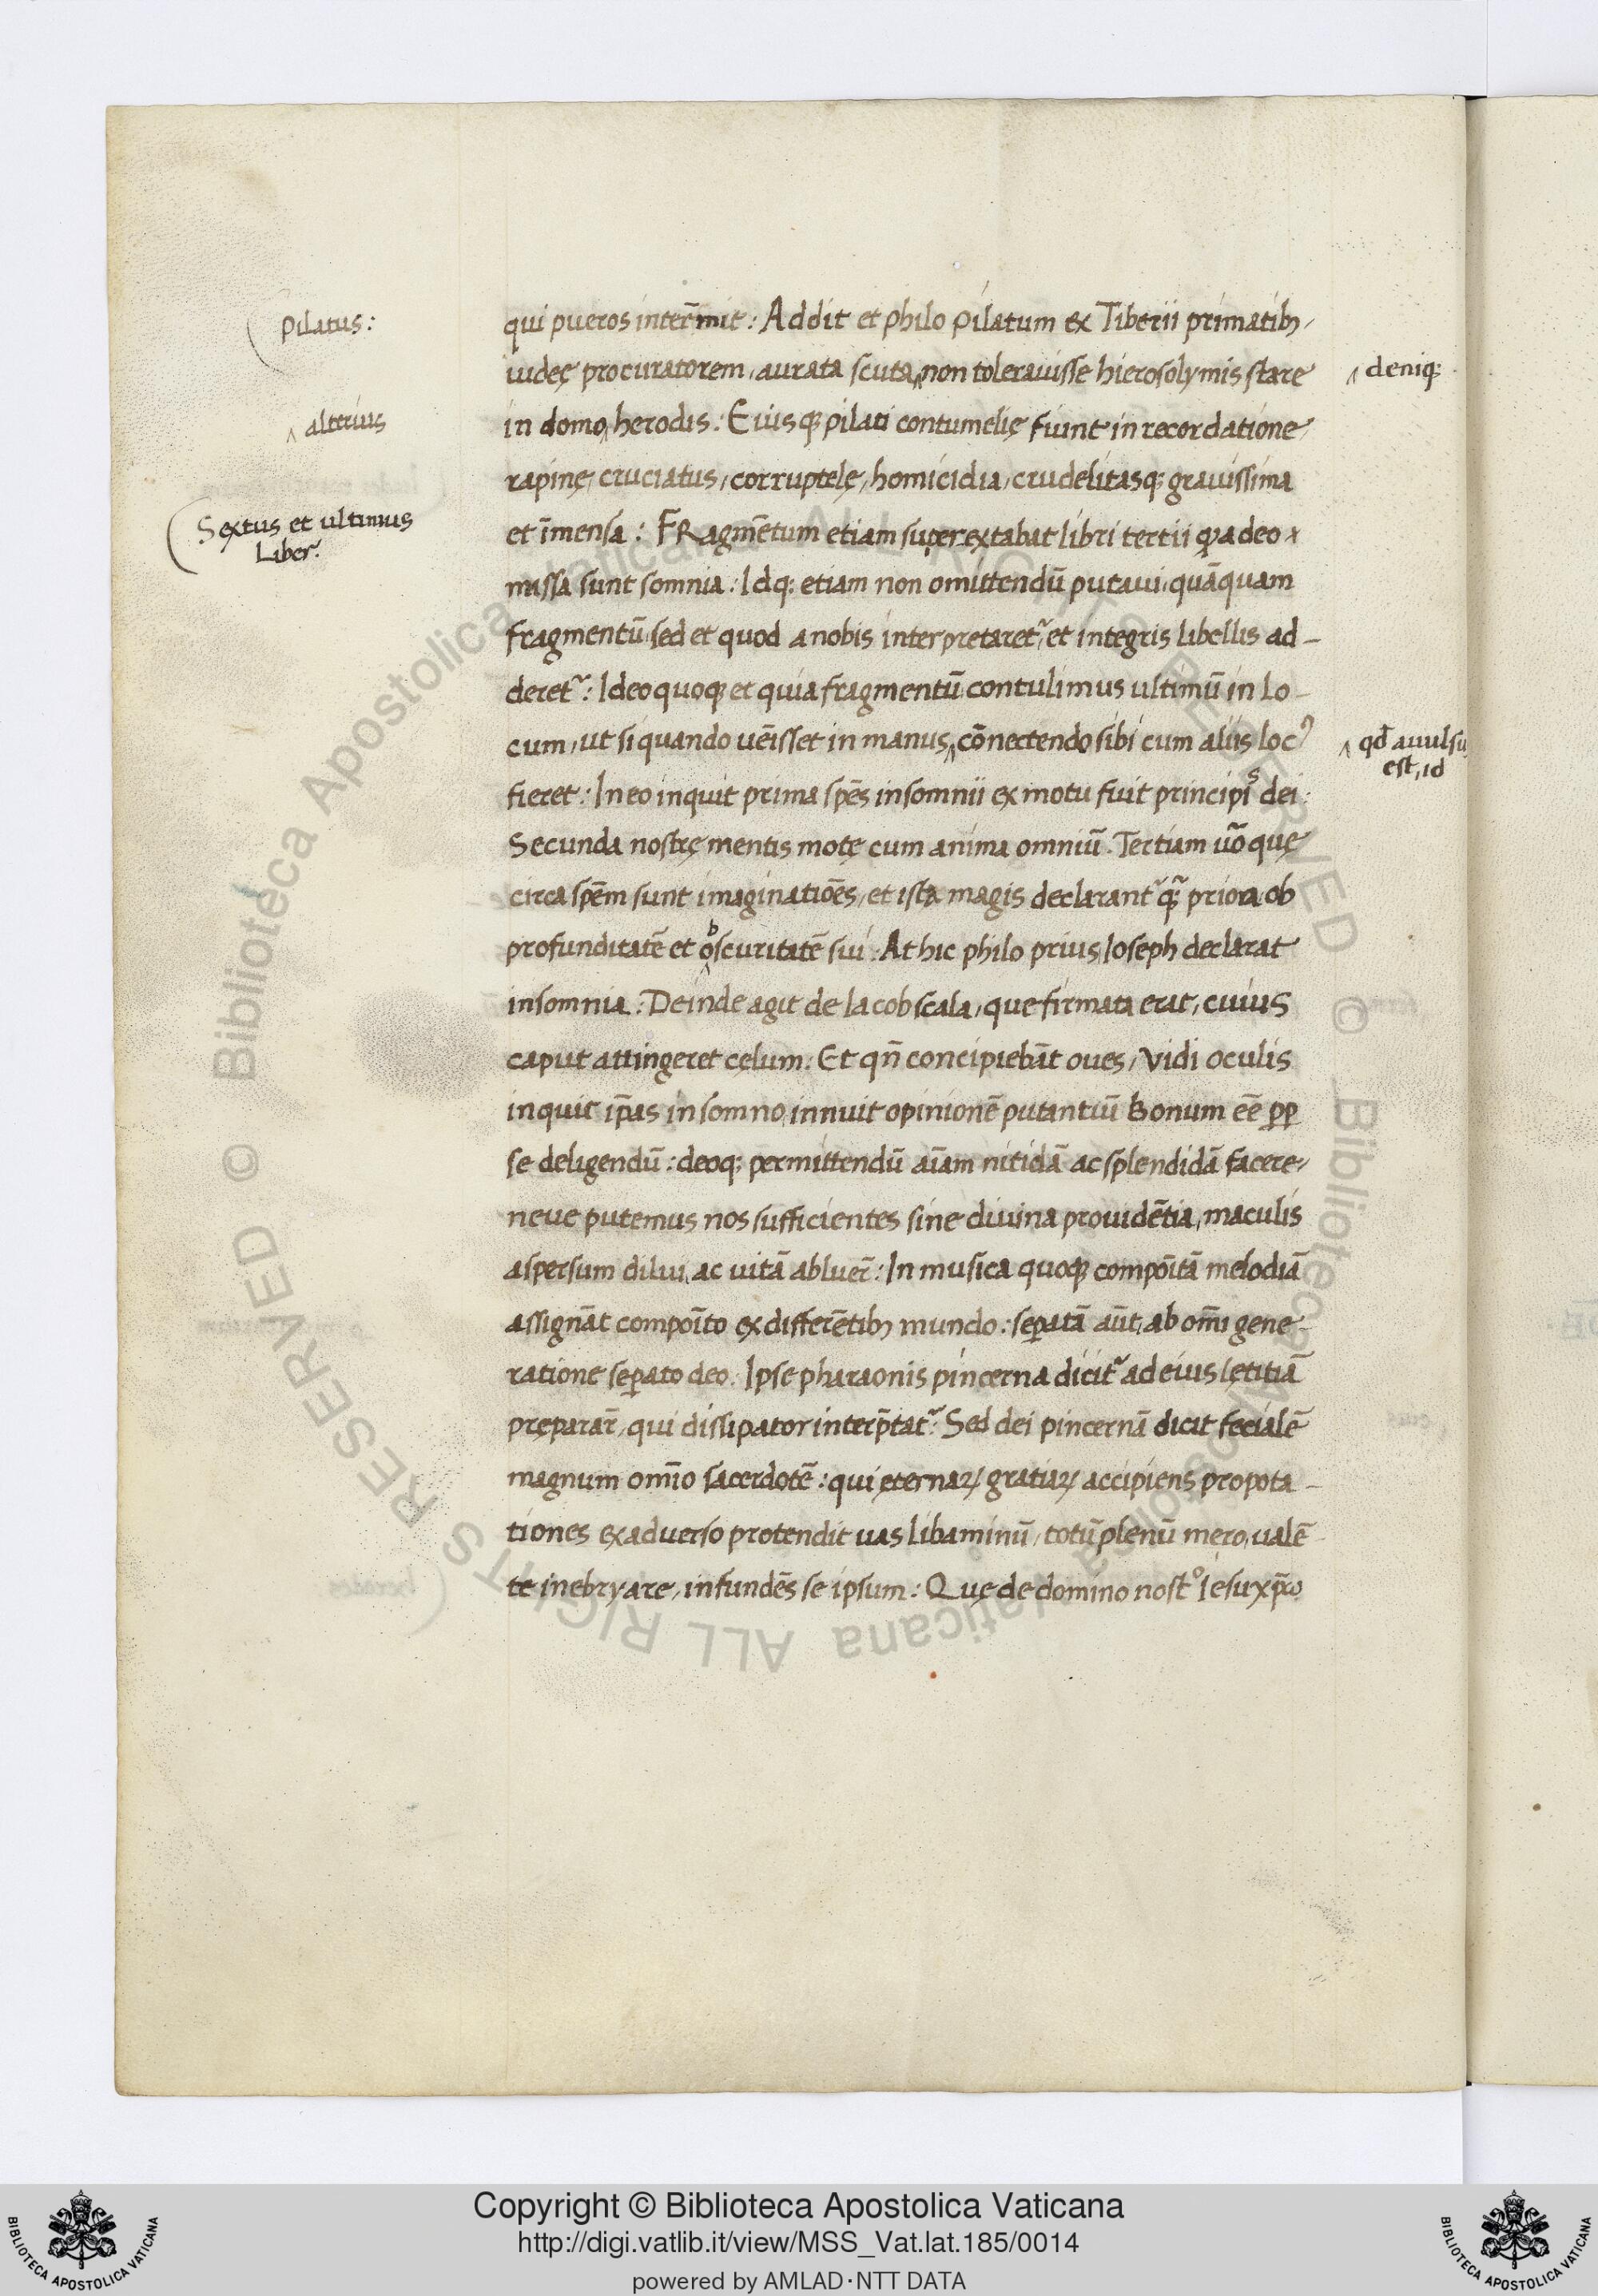 pilatus:
qui pueros interēmit: Addit et philo pilatum ex Tiberii primatib;
iudeę procuratorem, aurata scuta, non tolerauisse hierosolymis stare
‸ deniq;
in domo, herodis: Eiusq; pilati contumelię fiunt in recordatione
‸ alterius
rapinę, cruciatus, corruptelę, homicidia, crudelitasq; grauissima
et īmensa: FRagmētum etiam superextabat libri tertii q̃ a deo
Sextus et ultimus
Liber:
missa sunt somnia: Idq; etiam non omittendū putaui, quāquam
fragmentū, sed et quod a nobis interpretaret᷑, et integris libellis ad-
deret᷑: Ideo quoq; et quia fragmentū, contulimus ultimū in lo-
cum, ut si quando uēisset in manus, cōnectendo sibi cum aliis locꝰ
‸ qđ auulsu
est, id
fieret: In eo inquit prima spēs insomnii ex motu fuit principis dei:
Secunda nostrę mentis motę cum anima omniū. Tertiam uō quę
circa spēm sunt imaginatiōes, et ista magis declarant᷑ q̃ priora, ob
profunditatē et obscuritatē sui: At hic philo prius Ioseph declarat
insomnia: Deinde agit de Iacob scala, que firmata erat, cuius
caput attingeret cęlum: Et qñ concipiebāt oues, Vidi oculis
inquit ip̄as in somno, innuit opinionē putantiū Bonum eē ꝓp
se deligendū: deoq; permittendū aīam nitidā ac splendidā facere,
neue putemus nos sufficientes sine diuina prouidētia, maculis
aspersum dilui, ac uitā abluer̄: In musica quoq; compōitā melodiā
assignāt compōito ex differētib; mundo: sep̄atā aūt, ab om̄i gene-
ratione sep̄ato deo. Ipse pharaonis pincerna dicit᷑ ad eius lętitiā
pręparar̄, qui dissipator interp̄tat᷑: Sed dei pincernā dicit fecialē
magnum om̄io sacerdotē: qui ęternaꝝ gratiaꝝ accipiens propota-
tiones ex aduerso protendit uas libaminū, totū plenū mero, ualē
te inebryare, infundēs se ipsum: Quę de domino nost͛o Iesu xp̄o
Copyright © Biblioteca Apostolica Vaticana
http://digi.vatlib.it/view/MSS_Vat.lat.185/0014
powered by AMLAD·NTT DATA